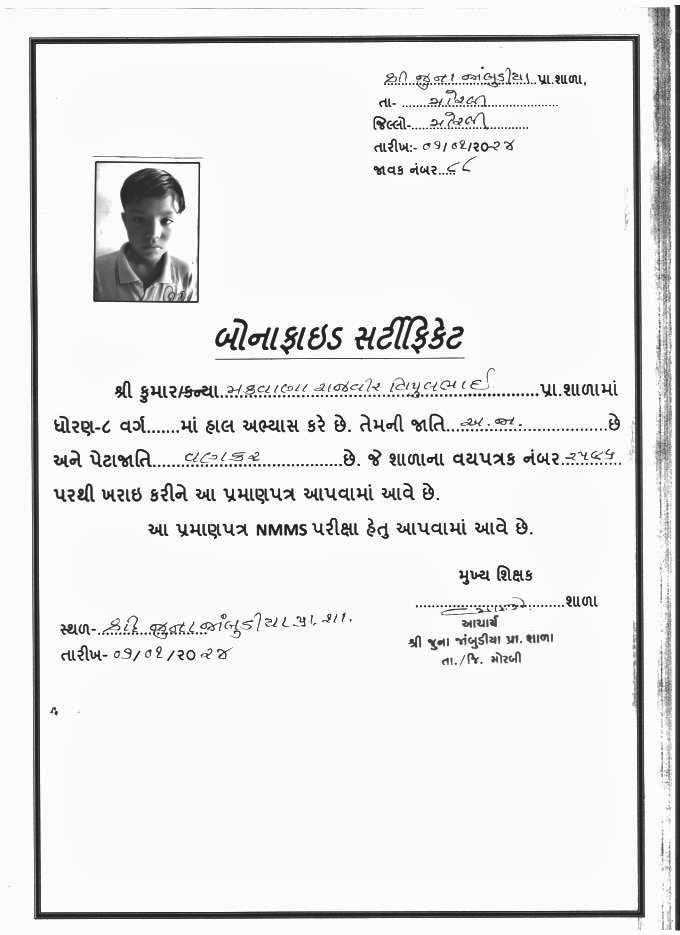 શ્રી જુના જાંબુડીયા પ્રા.શાળા,
તા- મોરબી
જિલ્લો- મોરબી
તારીખ:- ૦૧/૦૧/૨૦૨૪
જાવક નંબર...૬૮
બોનાફાઇડ સર્ટીફિકેટ
શ્રી કુમાર/કન્યા મકવાણા રાજવીર વિપુલભાઈ પ્રા.શાળામાં
ધોરણ-૮ વર્ગ.......માં હાલ અભ્યાસ કરે છે. તેમની જાતિ અ.જા. છે
અને પેટાજાતિ વણકર છે. જે શાળાના વયપત્રક નંબર
પરથી ખરાઇ કરીને આ પ્રમાણપત્ર આપવામાં આવે છે.
આ પ્રમાણપત્ર NMMS પરીક્ષા હેતુ આપવામાં આવે છે.
મુખ્ય શિક્ષક
શાળા
આચાર્ય
શ્રી જુના જાંબુડીયા પ્રા. શાળા
તા./જિ. મોરબી
સ્થળ- શ્રી જુના જાંબુડીયા પ્રા. શા.
તારીખ- ૦૧/૦૧/૨૦૨૪